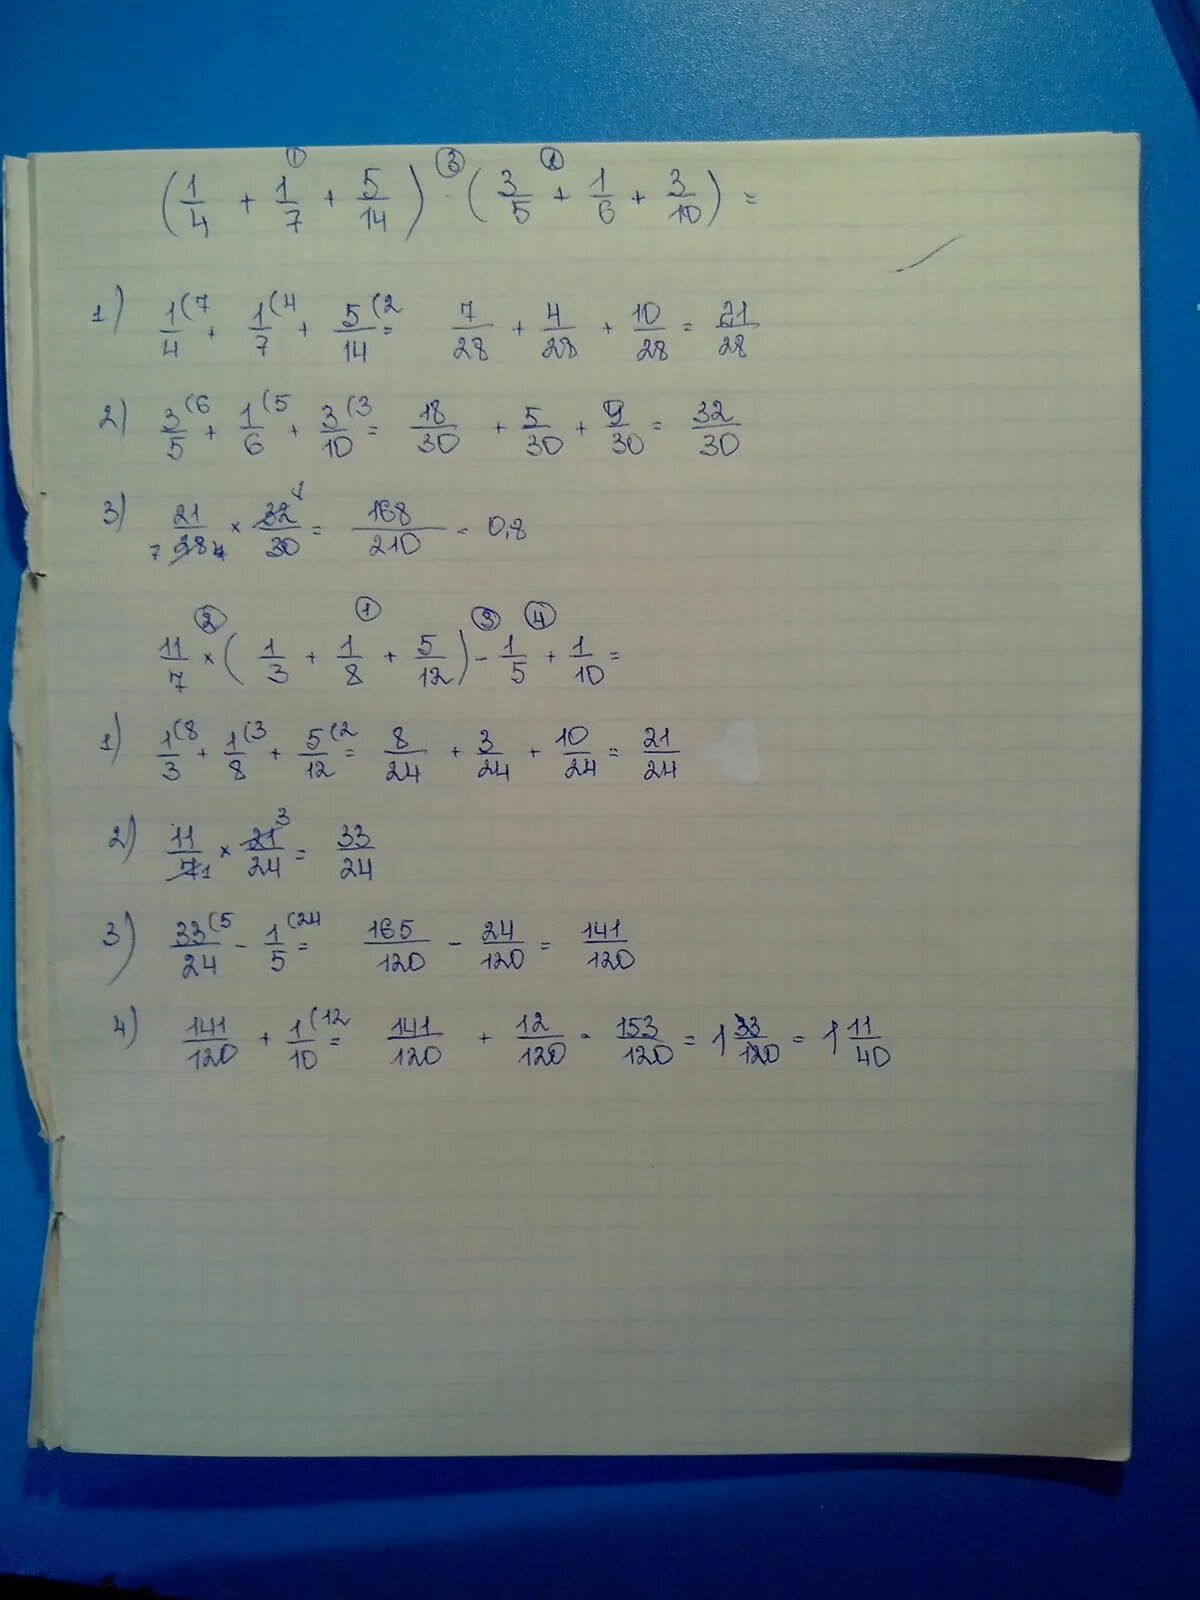 (1/4 + 1/7 + 5/14) · (3/5 + 1/6 + 3/10) =
① ③ ②
1) 1/4 (7 + 1/7 (4 + 5/14 (2 = 7/28 + 4/28 + 10/28 = 21/28
2) 3/5 (6 + 1/6 (5 + 3/10 (3 = 18/30 + 5/30 + 9/30 = 32/30
3) 21/28 × 32/30 = 168/210 = 0,8
② ① ③ ④
11/7 × (1/3 + 1/8 + 5/12) - 1/5 + 1/10 =
1) 1/3 (8 + 1/8 (3 + 5/12 (2 = 8/24 + 3/24 + 10/24 = 21/24
2) 11/7 1 × 21/24 3 = 33/24
3) 33/24 (5 - 1/5 (24 = 165/120 - 24/120 = 141/120
4) 141/120 + 1/10 (12 = 141/120 + 12/120 = 153/120 = 1 33/120 = 1 11/40